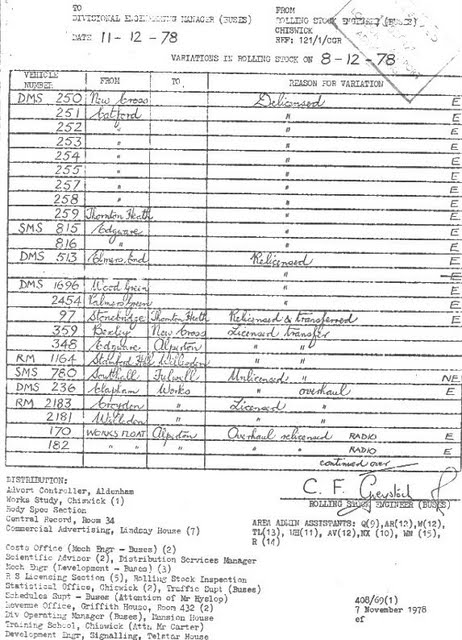 TO
DIVISIONAL ENGINEERING MANAGER (BUSES)
DATE 11-12-78
FROM
ROLLING STOCK ENGINEER (BUSES)
CHISWICK
REF: 121/1/CGR
VARIATIONS IN ROLLING STOCK ON 8-12-78
VEHICLE NUMBER FROM TO REASON FOR VARIATION
DMS 250 New Cross Delicensed E
251 Catford " E
252 " " E
253 " " E
254 " " E
255 " " E
257 " " E
258 " " E
259 Thornton Heath " E
SMS 815 Edgware " E
816 " " E
DMS 513 Elmers End Relicensed E
" E
DMS 1696 Wood Green " E
2454 Palmers Green " E
97 Stonebridge Thornton Heath Relicensed & transferred E
359 Bexley New Cross Licensed transfer
348 Edgware Alperton " "
RM 1164 Stamford Hill Willesden " "
SMS 780 Southall Fulwell Unlicensed " NE
DMS 236 Clapham Works " overhaul E
RM 2183 Croydon " Licensed "
2181 " " "
170 WORKS FLOAT Alperton Overhaul relicensed RADIO E
182 " " " " RADIO E
continued over
C. F.
ROLLING STOCK ENGINEER (BUSES)
DISTRIBUTION:
Advert Controller, Aldenham
Works Study, Chiswick (1)
Body Spec Section
Central Record, Room 34
Commercial Advertising, Lindsay House (7)
AREA ADMIN ASSISTANTS: Q(9), AR(12), W(12),
TL(13), UH(11), AV(12), NX (10), WN (15),
R (14)
Costs Office (Mech Engr - Buses) (2)
Scientific Advisor (2), Distribution Services Manager
Mech Engr (Development - Buses) (3)
R S Licencing Section (5), Rolling Stock Inspection
Statistical Office, Chiswick (2), Traffic Supt (Buses)
Schedules Supt - Buses (Attention of Mr Hyslop)
Revenue Office, Griffith House, Room 432 (2)
Div Operating Manager (Buses), Mansion House
Training School, Chiswick (Attn Mr Carter)
Development Engr, Signalling, Telstar House
408/69(1)
7 November 1978
ef